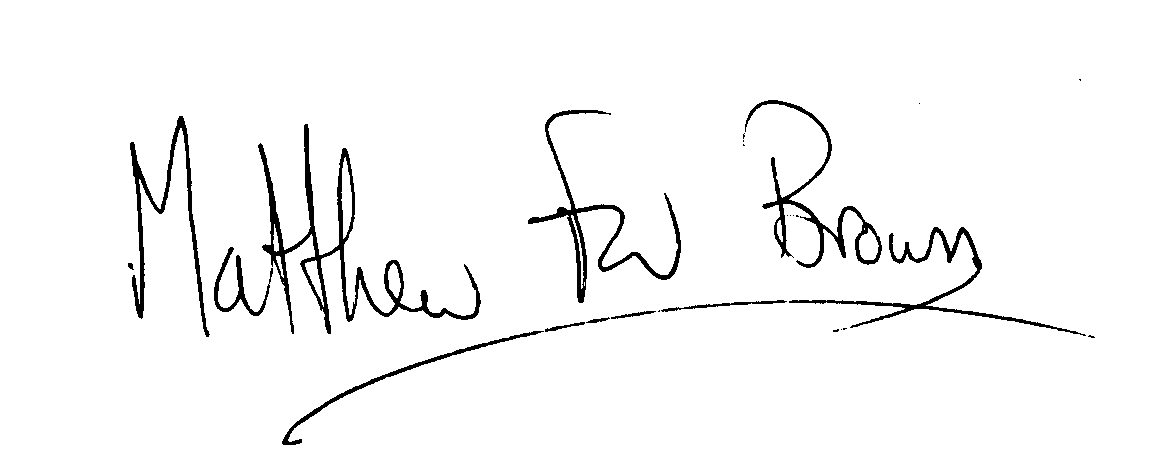 Matthew FW Brown